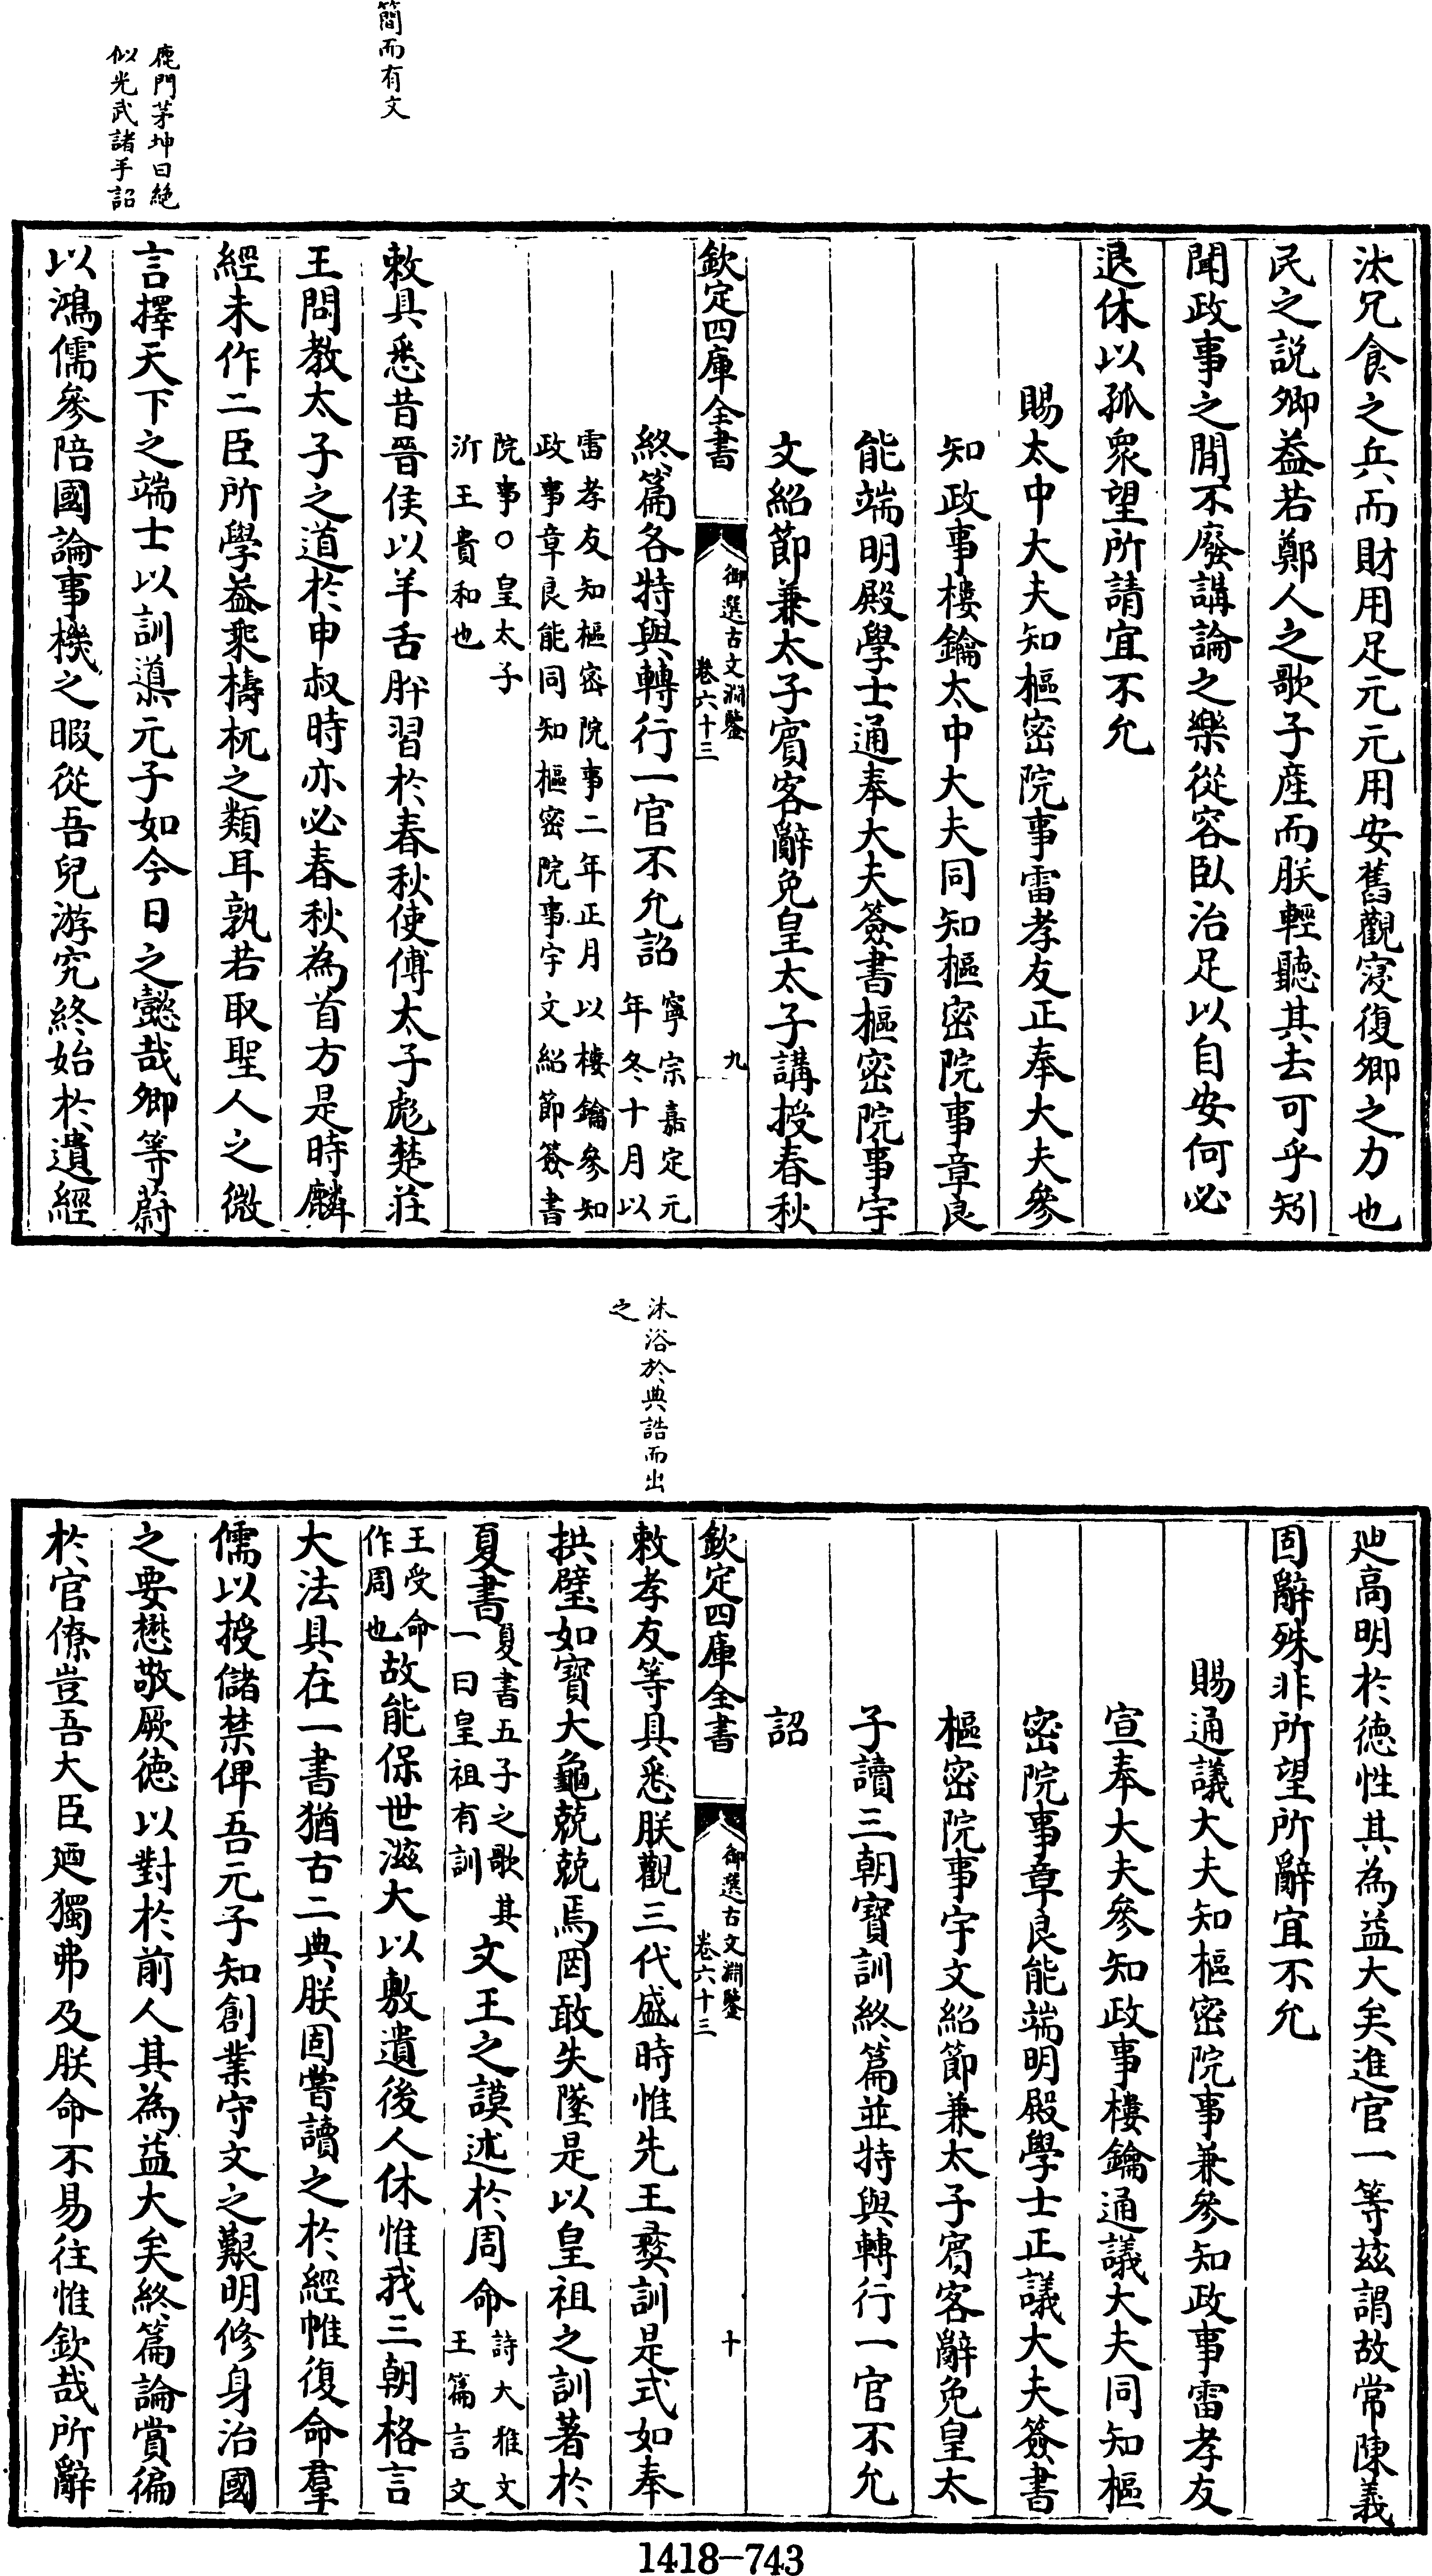 簡而有文
鹿門茅坤曰絶
似光武諸手詔
汰冗食之兵而財用足元元用安舊觀寖復卿之力也
民之説卿益若鄭人之歌子産而朕輕聽其去可乎矧
聞政事之閒不廢講論之樂從容臥治足以自安何必
退休以孤衆望所請宜不允
賜太中大夫知樞密院事雷孝友正奉大夫參
知政事樓鑰太中大夫同知樞密院事章良
能端明殿學士通奉大夫簽書樞密院事宇
文紹節兼太子賓客辭免皇太子講授春秋
欽定四庫全書
御選古文淵鑒
卷六十三
九
終篇各特與轉行一官不允詔
寧宗嘉定元
年冬十月以
雷孝友知樞密院事二年正月以樓鑰參知
政事章良能同知樞密院事宇文紹節簽書
院事○皇太子
沂王貴和也
敕具悉昔晉侯以羊舌肸習於春秋使傅太子彪楚莊
王問教太子之道於申叔時亦必春秋為首方是時麟
經未作二臣所學益乘檮杌之類耳孰若取聖人之微
言擇天下之端士以訓導元子如今日之懿哉卿等蔚
以鴻儒參陪國論事機之暇從吾兒游究終始於遺經
沐浴於典誥而出
之
廸高明於德性其為益大矣進官一等兹謂故常陳義
固辭殊非所望所辭宜不允
賜通議大夫知樞密院事兼參知政事雷孝友
宣奉大夫參知政事樓鑰通議大夫同知樞
密院事章良能端明殿學士正議大夫簽書
樞密院事宇文紹節兼太子賓客辭免皇太
子讀三朝寶訓終篇並特與轉行一官不允
詔
欽定四庫全書
御選古文淵鑒
卷六十三
十
敕孝友等具悉朕觀三代盛時惟先王彝訓是式如奉
拱璧如寶大龜兢兢焉罔敢失墜是以皇祖之訓著於
夏書
夏書五子之歌其
一曰皇祖有訓
文王之謨述於周命
詩大雅文
王篇言文
王受命
作周也
故能保世滋大以敷遺後人休惟我三朝格言
大法具在一書猶古二典朕固嘗讀之於經帷復命羣
儒以授儲禁俾吾元子知創業守文之艱明修身治國
之要懋敬厥德以對於前人其為益大矣終篇論賞徧
於官僚豈吾大臣廼獨弗及朕命不易往惟欽哉所辭
1418-743